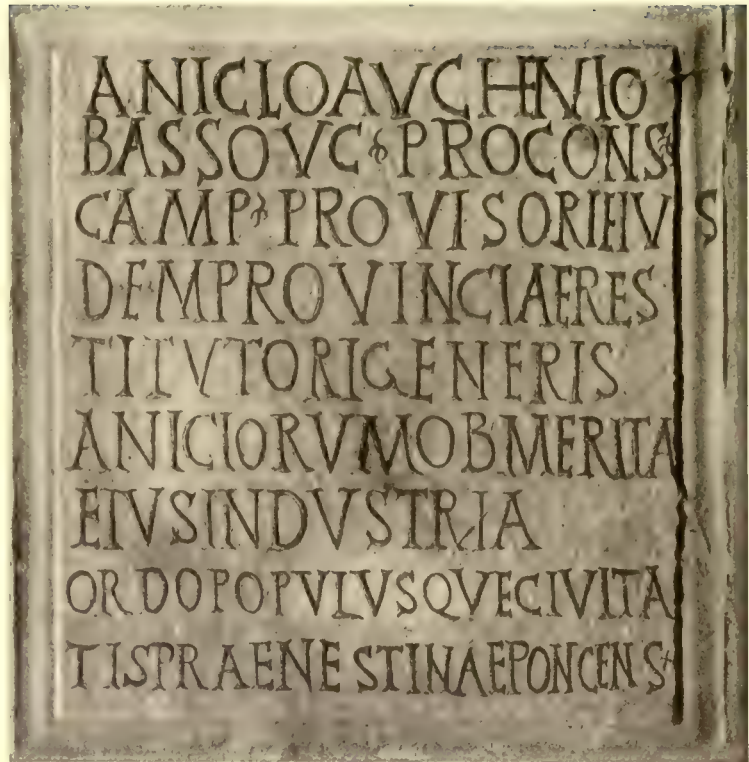 ANICIO AVCHENIO
BASSO V C PROCONS
CAMP PROVISORI EIVS
DEM PROVINCIAE RES
TITVTORI GENERIS
ANICIORVM OB MERITA
EIVS INDVSTRIA
ORDO POPVLVSQVE CIVITA
TIS PRAENESTINAE PON CENS